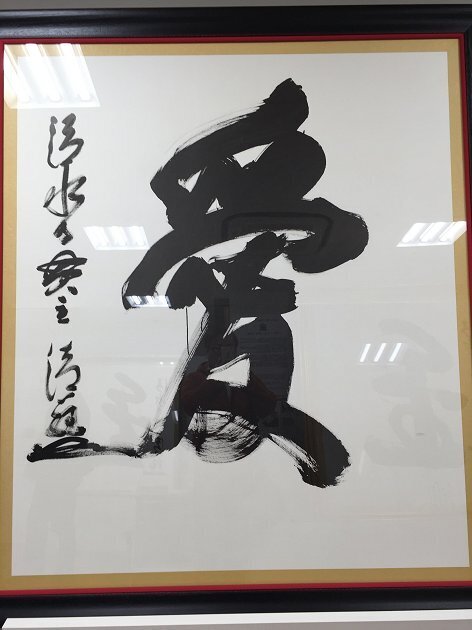 愛
清水寺貫主 清範